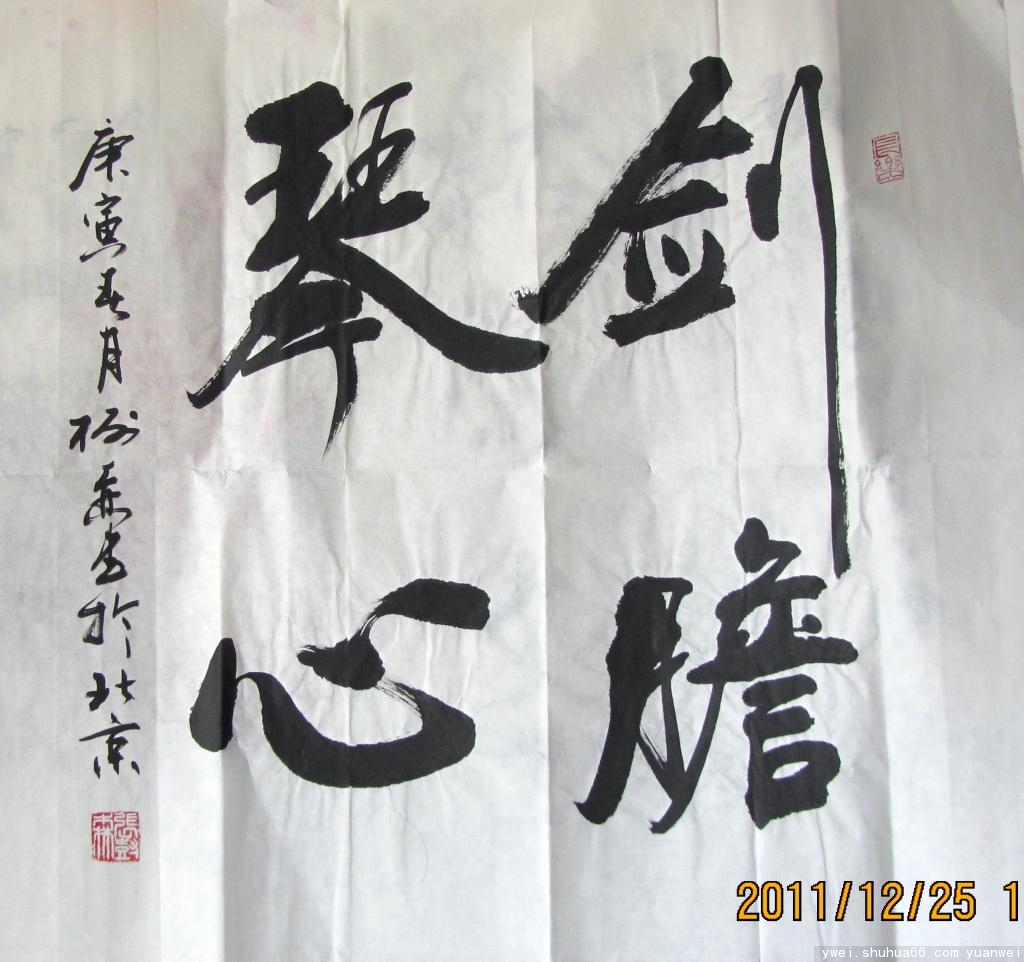 剑膽
琴心
庚寅春月树森书於北京
長樂
2011/12/25 1
ywei.shuhua66.com yuanwei